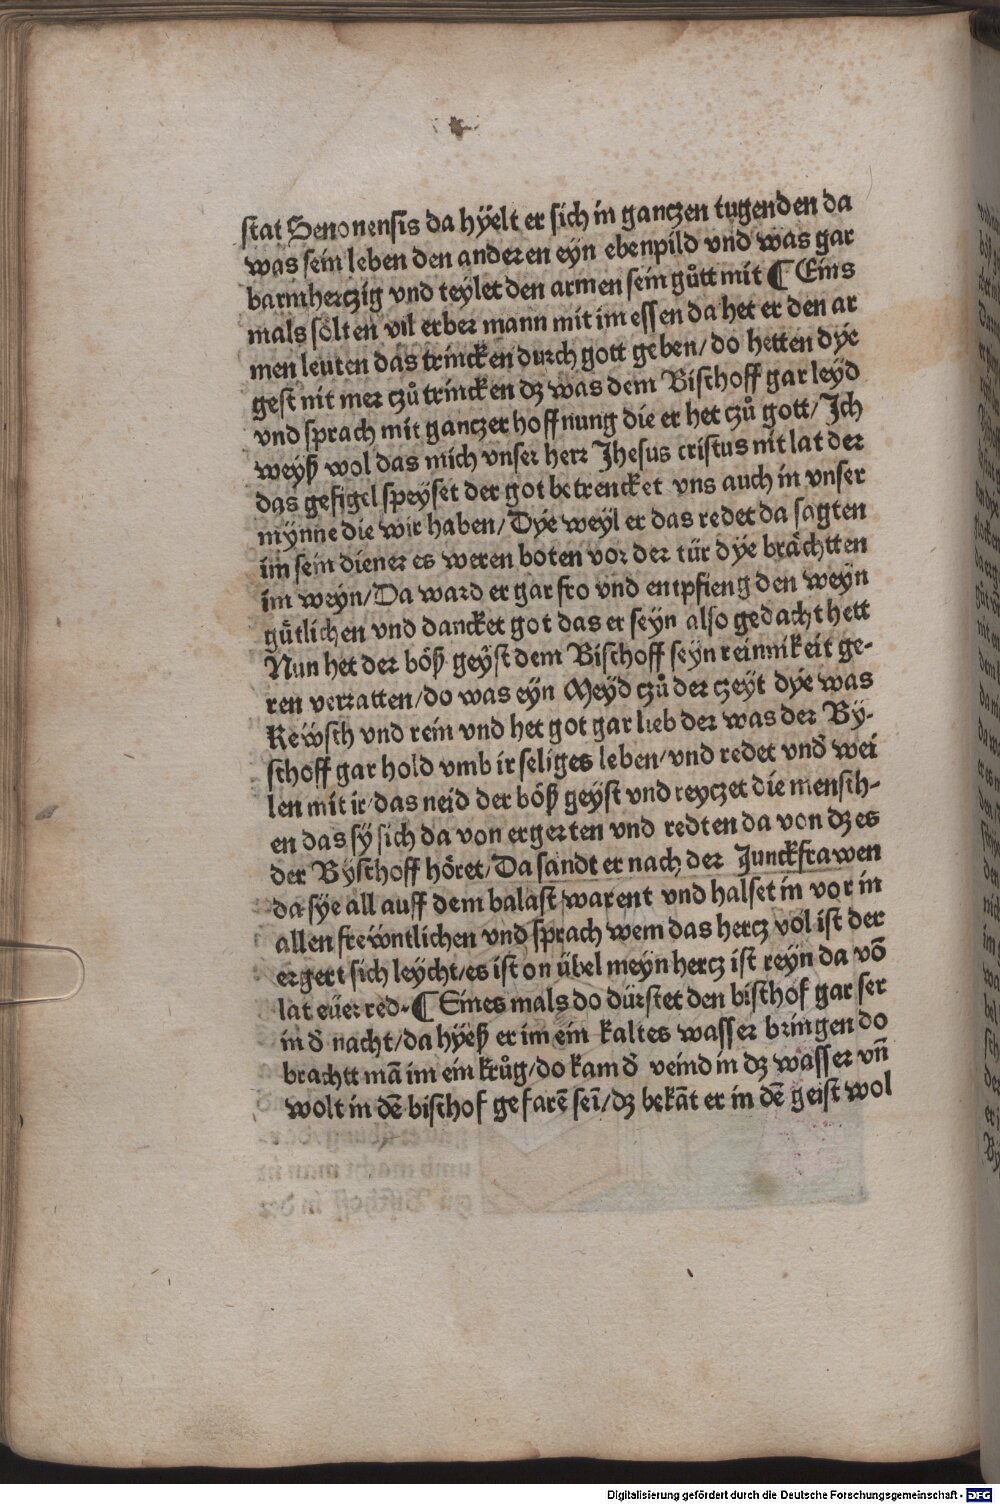 stat Senonensis da hÿelt er sich in ganczen tugenden da
was sein leben den anderen eyn ebenpild vnd was gar
barmherczig vnd teylet den armen sein gůtt mit ¶ Eins
mals sölten vil erber mann mit im essen da het er den ar
men leuten das trincken durch gott geben/ do hetten dÿe
gest nit mer czů trincken dz was dem Bischoff gar leyd
vnd sprach mit ganczer hoffnung die er het czů gott/ Jch
weyß wol das mich vnser herr Jhesus cristus nit lat der
das gefigel speÿset der got betrencket vns auch in vnser
mÿnne die wir haben/ Dÿe weyl er das redet da sagten
im sein diener es weren boten vor der tür dÿe brächtten
im weyn/ Da ward er gar fro vnd entpfieng den weyn
gůtlichen vnd dancket got das er seyn also gedacht hett
Nun het der böß geÿst dem Bischoff seyn reinnikeit ge-
ren verratten/ do was eyn Meÿd czů der czeyt dÿe was
kewsch vnd rein vnd het got gar lieb der was der Bÿ-
schoff gar hold vmb ir seliges leben/ vnd redet vnd̕ wei
len mit ir/ das neid der böß geÿst vnd reyczet die mensch-
en das sÿ sich da von ergerten vnd redten da von dz es
der Bÿschoff höret/ Da sandt er nach der Junckfrawen
da sÿe all auff dem balast warent vnd halset in vor in
allen frewntlichen vnd sprach wem das hercz vol ist der
ergert sich leÿcht/ es ist on übel meyn hercz ist reyn da võ
lat eüer red. ¶ Eines mals do dürstet den bischof gar ser
in d̕ nacht/ da hÿeß er im ein kaltes wasser bringen do
brachtt mã im ein krůg/ do kam d̕ veind in dz wasser vñ
wolt in dẽ bischof gefarẽ seĩ/ dz bekãt er in dẽ geist wol
Digitalisierung gefördert durch die Deutsche Forschungsgemeinschaft - DFG